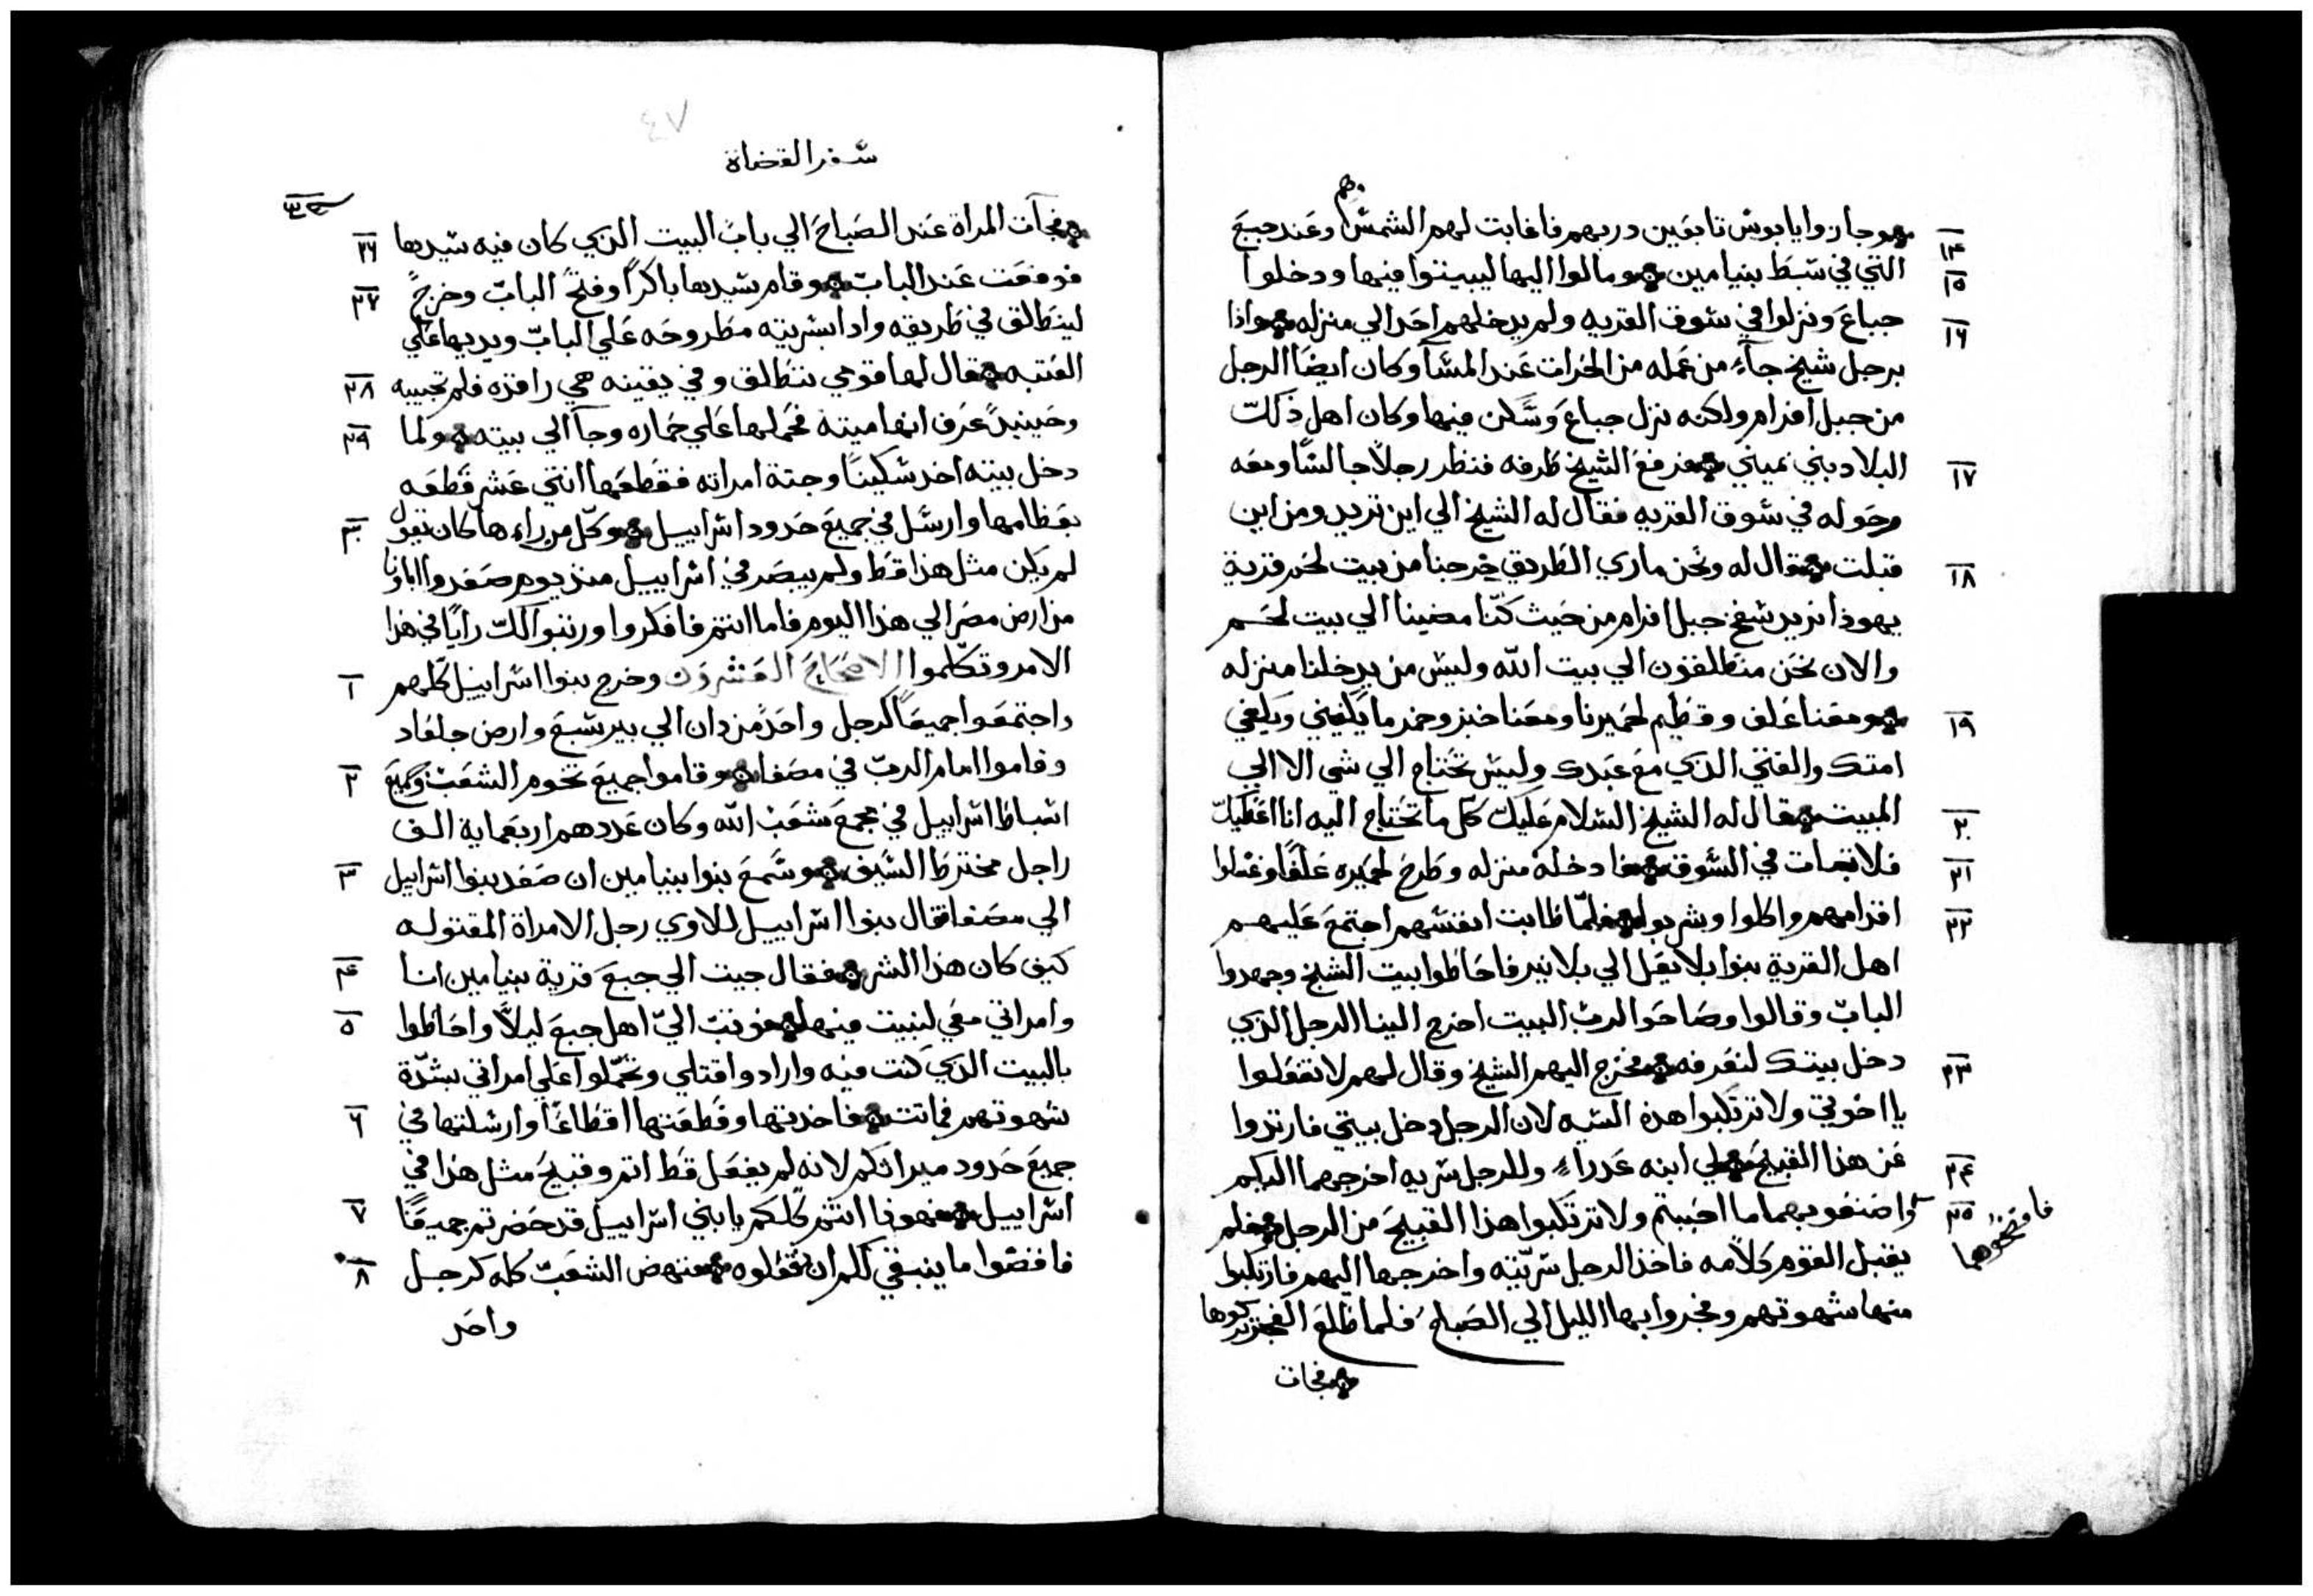 وجازوا يابوش تابعين دربهم فاغابت لهم الشمش وهم وعند جبع
١٤
التي في شبط بنيامين ومالوا اليها ليبيتوا فيها ودخلوا
١٥
جباع ونزلوا في شوق القريه ولم يدخلهم احد الي منزله واذا
١٦
برجل شيخ جآء من عمله من الحرات عند المشآ وكان ايضا الرجل
من جبل افرام ولكنه نزل جباع وشكن فيها وكان اهل ذلك
البلاد بني نميني فرفع الشيخ طرفه فنظر رجلاً جالشا ومعه
١٧
وحوله في شوق القريه فقال له الشيخ الي اين تريد ومن اين
قبلت فقال له ونحن ماري الطريق خرجنا من بيت لحم قرية
١٨
يهوذا نريد شفح جبل افرام من حيث كنّا مضينا الي بيت لحم
والان نحن منطلقون الي بيت الله وليش من يدخلنا منزله
ومعنا علف وقظيم لحميرنا ومعنا خبز وخمر ما يكفيني ويكفي
١٩
امتك والفتي الذي مع عبدك وليش نحتاج الي شي الا الي
المبيت فقال له الشيخ الشلام عليك كل ما تحتاج اليه انا اعطيك
٢٠
فلا تبات في الشوق فادخله منزله وطرح لحميره علفًا وغشلوا
٢١
اقدامهم واكلوا وشربوا فلمّا طابت انفشهم اجتمع عليهم
٢٢
اهل القرية بنوا بلا يعل الي بلا نير فاحاطوا بيت الشيخ وجهدوا
الباب وقالوا وصاحوا لرب البيت اخرج الينا الرجل الذي
دخل بيتك لنعرفه فخرج اليهم الشيخ وقال لهم لا تفعلوا
٢٣
يا اخوتي ولا ترتكبوا هذه الشيه لان الرجل دخل بيتي فارتدوا
عن هذا القبيح لي ابنه عدراء وللرجل شريه اخرجهما اليكم
٢٤
فافضحوهما
واصنعو بهما ما احببتم ولا ترتكبوا هذا القبيح من الرجل فلم
٢٥
يقبل القوم كلامه فاخذ الرجل شريّته واخرجها اليهم فارتكبوا
منها شهوتهم وفجروا بها الليل الي الصباح فلما طلع الفجر تركوها
فجات
٤٧
شفر القضاة
فجآت المراة عند الصباح الي باب البيت الذي كان فيه شيدها
٢٦
فوقعت عند الباب وقام شيدها باكراً وفتح الباب وخرج
٢٧
لينطالق في طريقه واذا بشريته مطروحه علي الباب ويديها علي
العتبه فقال لها قومي ننطالق وفي يقينه هي راقده فلم تجيبه
٢٨
وحينيدً عرف انها ميته فحملها علي حماره وجآ الي بيته ولما
٢٩
دخل بيته اخد شكينًا وجتة امراته فقطعها اتني عشر قطعه
بعظامها وارشل في جميع حدود اشراييل وكل من راءها كان يقول
٣٠
لم يكن مثل هذا قط ولم يبصر في اشراييل منذ يوم صعدوا اباونا
من ارض مصر الي هذا اليوم فاما انتم فافكروا ورتبوا لك رايًا في هذا
الامر وتكلموا الاصحاح العشرون وخرج بنوا اشراييل كلهم
١
واجتمعوا جميعاً كرجل واحدً من دان الي بير شبع وارض جلعاد
وقاموا امام الرب في مصفا وقاموا جميع تخوم الشعب وجميع
٢
اشباط اشراييل في مجمع شعب الله وكان عددهم اربعماية الف
راجل مخترط الشيف وشمع بنوا بنيامين ان صعد بنوا اشراييل
٣
الي مصفا فقال بنوا اشراييل للاوي رجل الامراة المقتوله
كيف كان هذا الشر فقال جيت الي جبع قرية بنيامين انا
٤
وامراتي معي لنبيت فيها فوتب اليّ اهل جبع ليلًا واحاطوا
٥
بالبيت الذي كنت فيه وارادوا قتلي وتحملوا علي امراتي بشدّة
شهوتهم فماتت فاخدتها وقطعتها اقطاعًا وارشلتها في
٦
جميع حدود ميراتكم لانه لم يفعل قط اتم وقبيح مثل هذا في
اشراييل فهوذا انتم كلكم يا بني اشراييل قد حضرتم جميعًا
٧
فاقضوا ما ينبغي لكم ان تفعلوه فنهض الشعب كله كرجل
٨
واحد